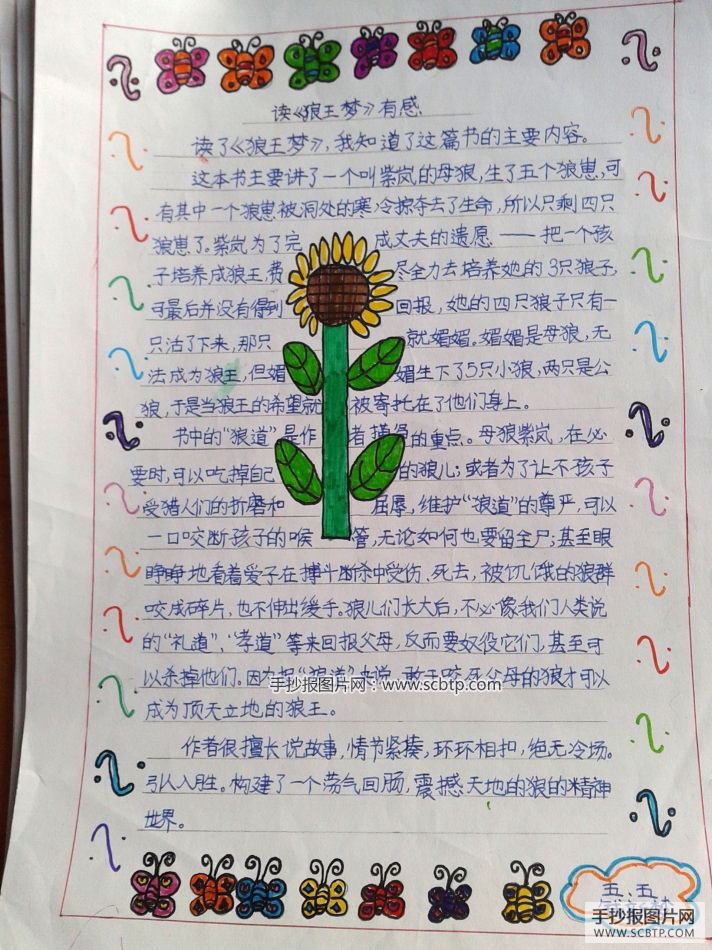 读《狼王梦》有感
读了《狼王梦》，我知道了这篇书的主要内容。
这本书主要讲了一个叫紫岚的母狼，生了五个狼崽，可
有其中一个狼崽被洞处的寒冷掠夺去了生命，所以只剩四只
狼崽了。紫岚为了完成丈夫的遗愿——把一个孩
子培养成狼王，费尽全力去培养她的3只狼子，
可最后并没有得到回报，她的四只狼子只有一
只活了下来，那只就媚媚。媚媚是母狼，无
法成为狼王，但媚媚生下了5只小狼，两只是公
狼，于是当狼王的希望就被寄托在了他们身上。
书中的“狼道”是作者的重点。母狼紫岚，在必
要时，可以吃掉自己的狼儿；或者为了让不孩子
受猎人们的折磨和屈辱，维护“狼道”的尊严，可以
一口咬断孩子的喉管，无论如何也要留全尸；甚至眼
睁睁地看着爱子在搏斗厮杀中受伤、死去，被饥饿的狼群
咬成碎片，也不伸出缓手。狼儿们长大后，不必像我们人类说
的“礼道”、“孝道”等来回报父母，反而要奴役它们，甚至可
以杀掉他们。因为把“狼道”来说，敢于咬死父母的狼才可以
手抄报图片网：www.scbtp.com
成为顶天立地的狼王。
作者很擅长说故事，情节紧揍，环环相扣，绝无冷场。
引人入胜。构建了一个荡气回肠，震撼天地的狼的精神
世界。
五、五
手抄报图片网
WWW.SCBTP.COM